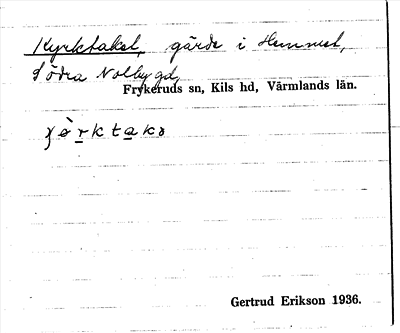 Kyrktaket, gärde i Hemmet,
Södra Nolby gd,
Frykeruds sn, Kils hd, Värmlands län.
Gertrud Erikson 1936.